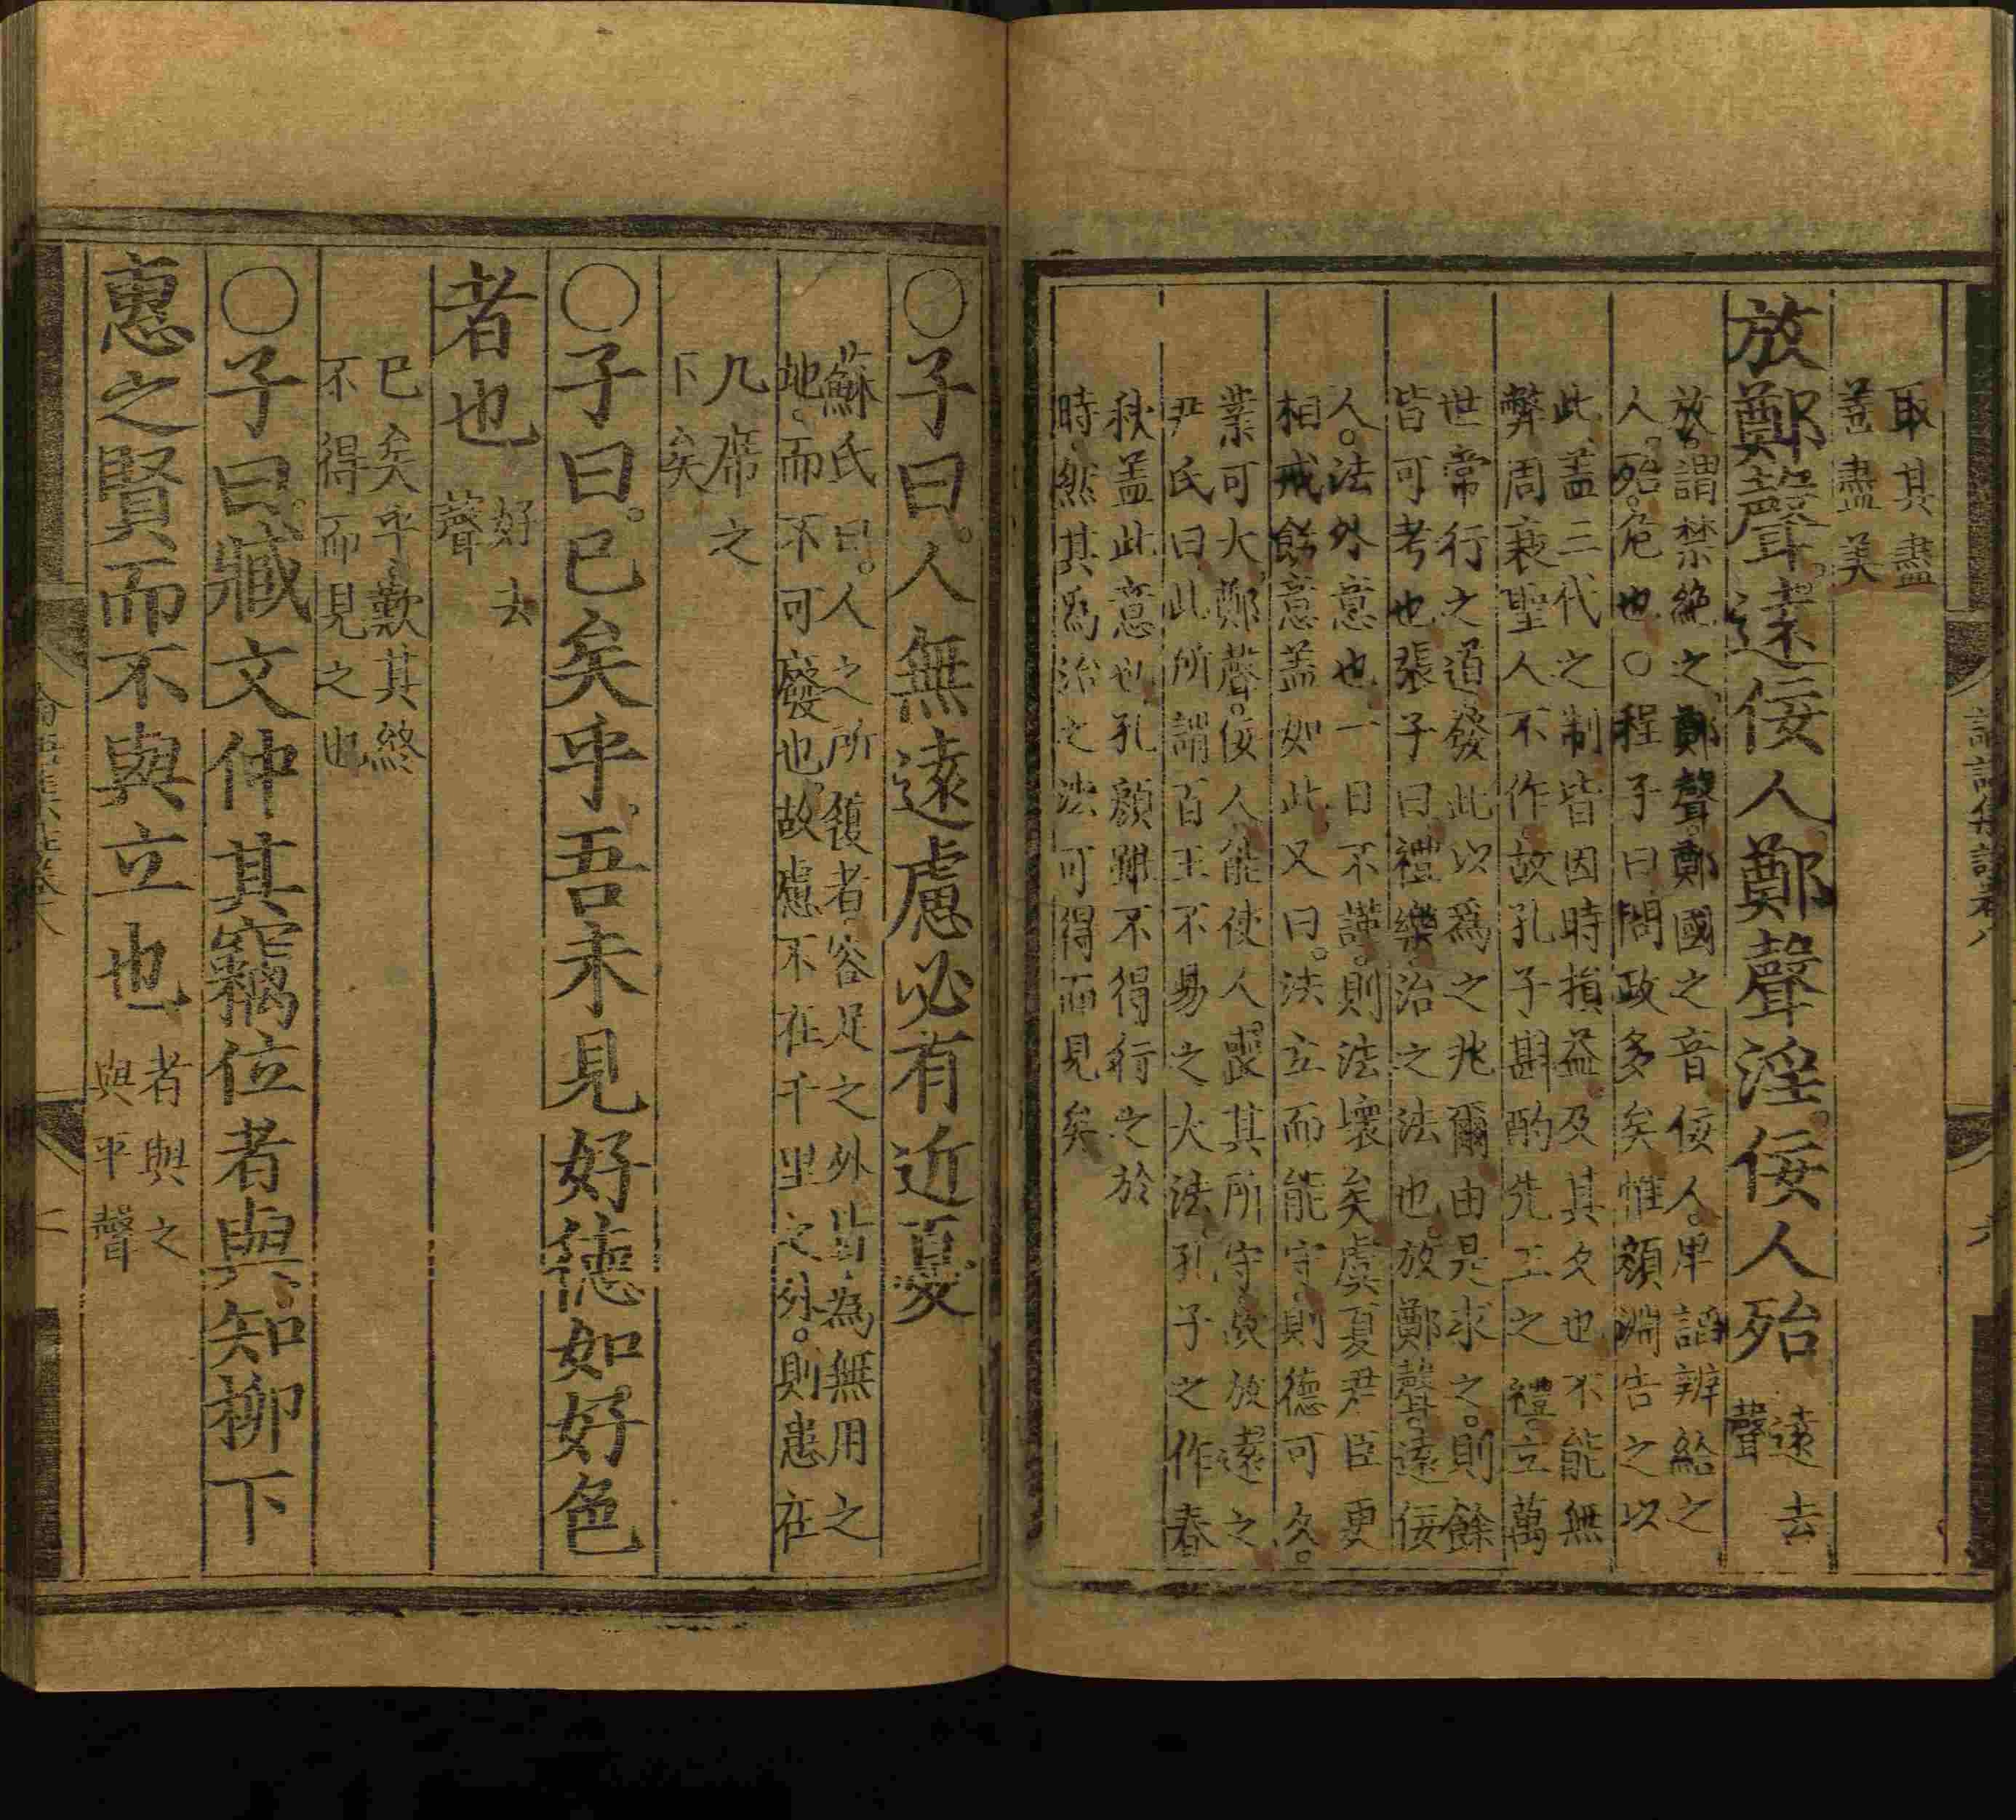 取其盡
善盡美
放鄭聲遠佞人鄭聲淫佞人殆
遠去
聲
放謂禁絶之鄭聲鄭國之音佞人卑諂辨給之
人殆危也○程子曰問政多矣惟顔淵告之以
此蓋三代之制皆因時損益及其久也不能無
弊周衰聖人不作故孔子斟酌先王之禮立萬
世常行之道發此以爲之兆爾由是求之則餘
皆可考也張子曰禮樂治之法也放鄭聲遠佞
人法外意也一日不謹則法壞矣虞夏君臣更
相戒飭意蓋如此又曰法立而能守則德可久
業可大鄭聲佞人能使人喪其所守故放遠之
尹氏曰此所謂百王不易之大法孔子之作春
秋蓋此意也孔顔雖不得行之於
時然其爲治之法可得而見矣
○子曰人無遠慮必有近憂
蘇氏曰人之所履者容足之外皆為無用之
地而不可廢也故慮不在千里之外則患在
几席之
下矣
○子曰已矣乎吾未見好德如好色
者也
好去
聲
已矣乎歎其終
不得而見之也
○子曰臧文仲其竊位者與知柳下
惠之賢而不與立也
者與之
與平聲